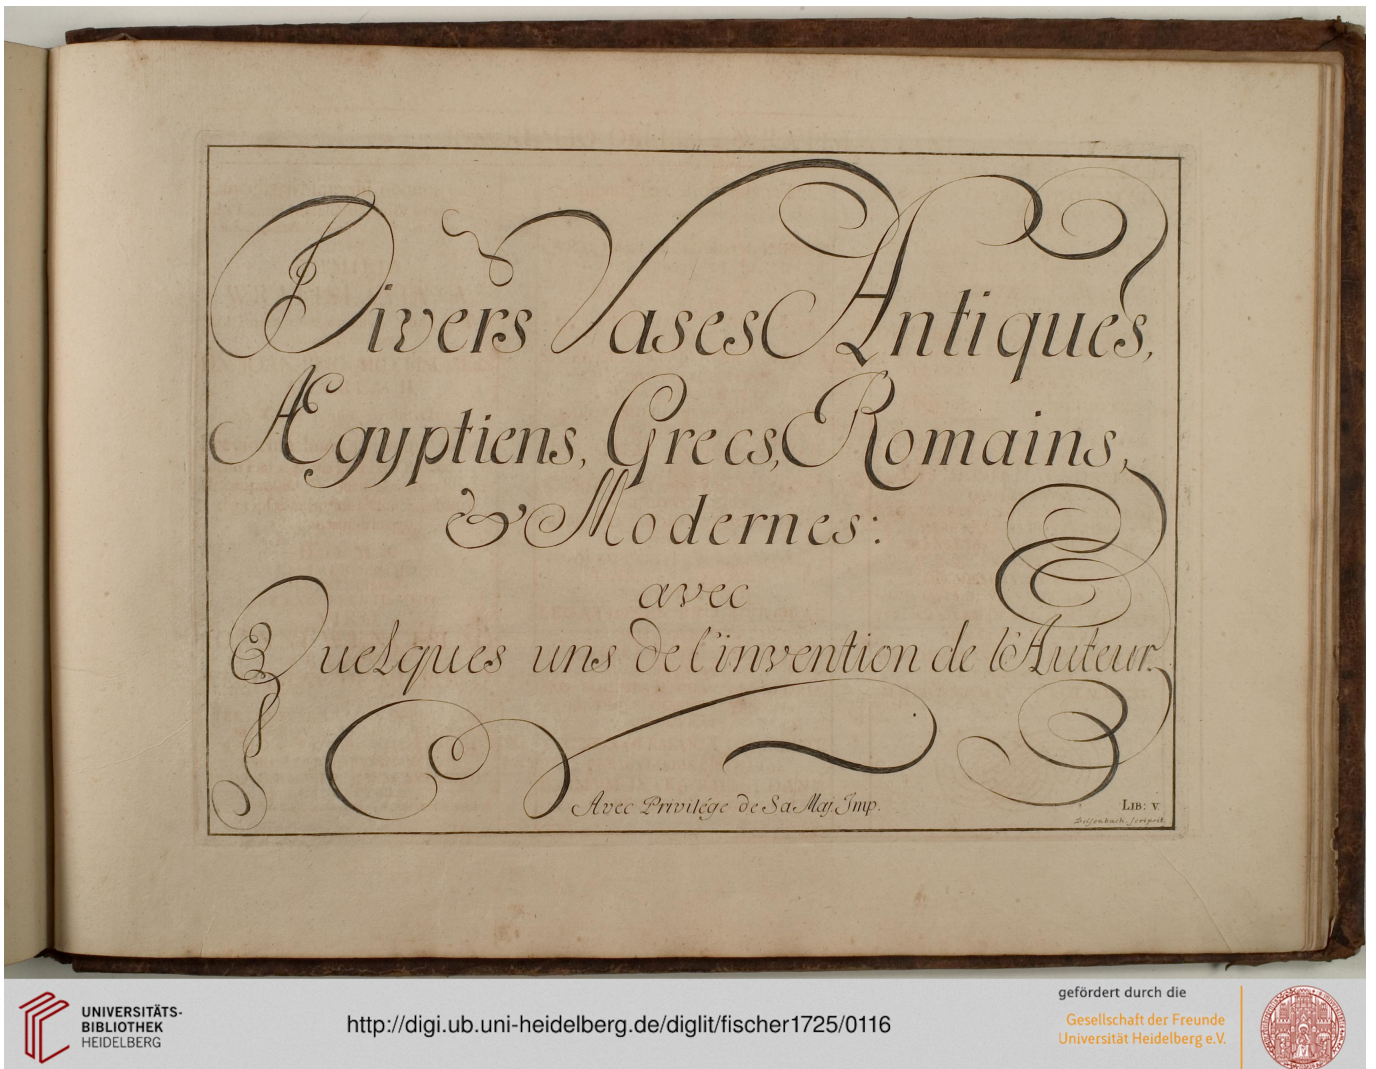 Divers Vases Antiques,
Ægyptiens, Grecs, Romains,
& Modernes:
avec
Quelques uns de l'invention de l'Auteur.
Avec Privilége de Sa Maj. Imp.
LIB: V.
Delsenbach. scripsit.
UNIVERSITÄTS-
BIBLIOTHEK
HEIDELBERG
http://digi.ub.uni-heidelberg.de/diglit/fischer1725/0116
gefördert durch die
Gesellschaft der Freunde
Universität Heidelberg e.V.